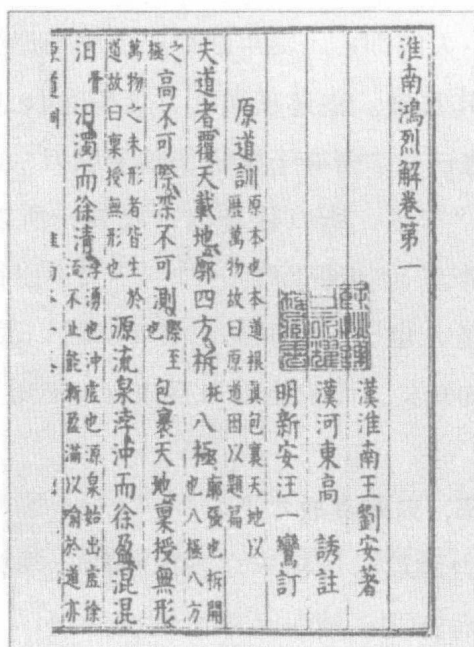 淮南鴻烈解卷第一
漢淮南王劉安著
漢河東高 誘註
明新安汪一鸞訂
原道訓 原本也本道根真包裹天地以歷萬物故曰原道因以題篇
夫道者覆天載地廓四方柝托八極廓張也柝開也八極八方
之極高不可際深不可測際至也包裹天地稟授無形
萬物之未形者皆生於道故曰稟授無形也源流泉浡沖而徐盈混混
汩骨汩濁而徐清浡湧也沖虛也源泉始出虛徐流不止能漸盈滿以喻於道亦